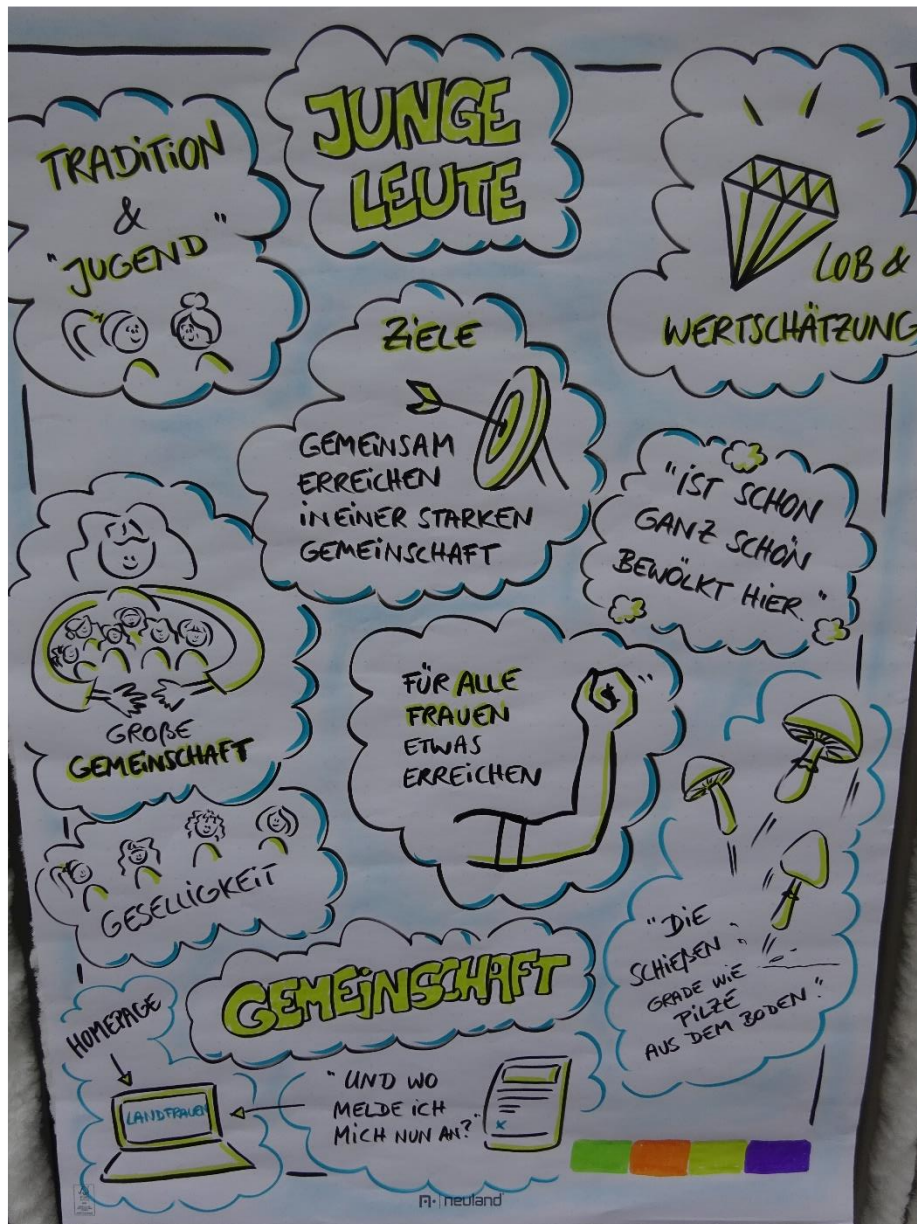 JUNGE
LEUTE
TRADITION
&
"JUGEND"
LOB &
WERTSCHÄTZUNG
ZIELE
GEMEINSAM
ERREICHEN
IN EINER STARKEN
GEMEINSCHAFT
"IST SCHON
GANZ SCHÖN
BEWÖLKT HIER."
GROßE
GEMEINSCHAFT
FÜR ALLE
FRAUEN
ETWAS
ERREICHEN
GESELLIGKEIT
"DIE
SCHIEßEN
GRADE WIE
PILZE
AUS DEM BODEN."
GEMEINSCHAFT
HOMEPAGE
LANDFRAUEN
"UND WO
MELDE ICH
MICH NUN AN?"
neuland